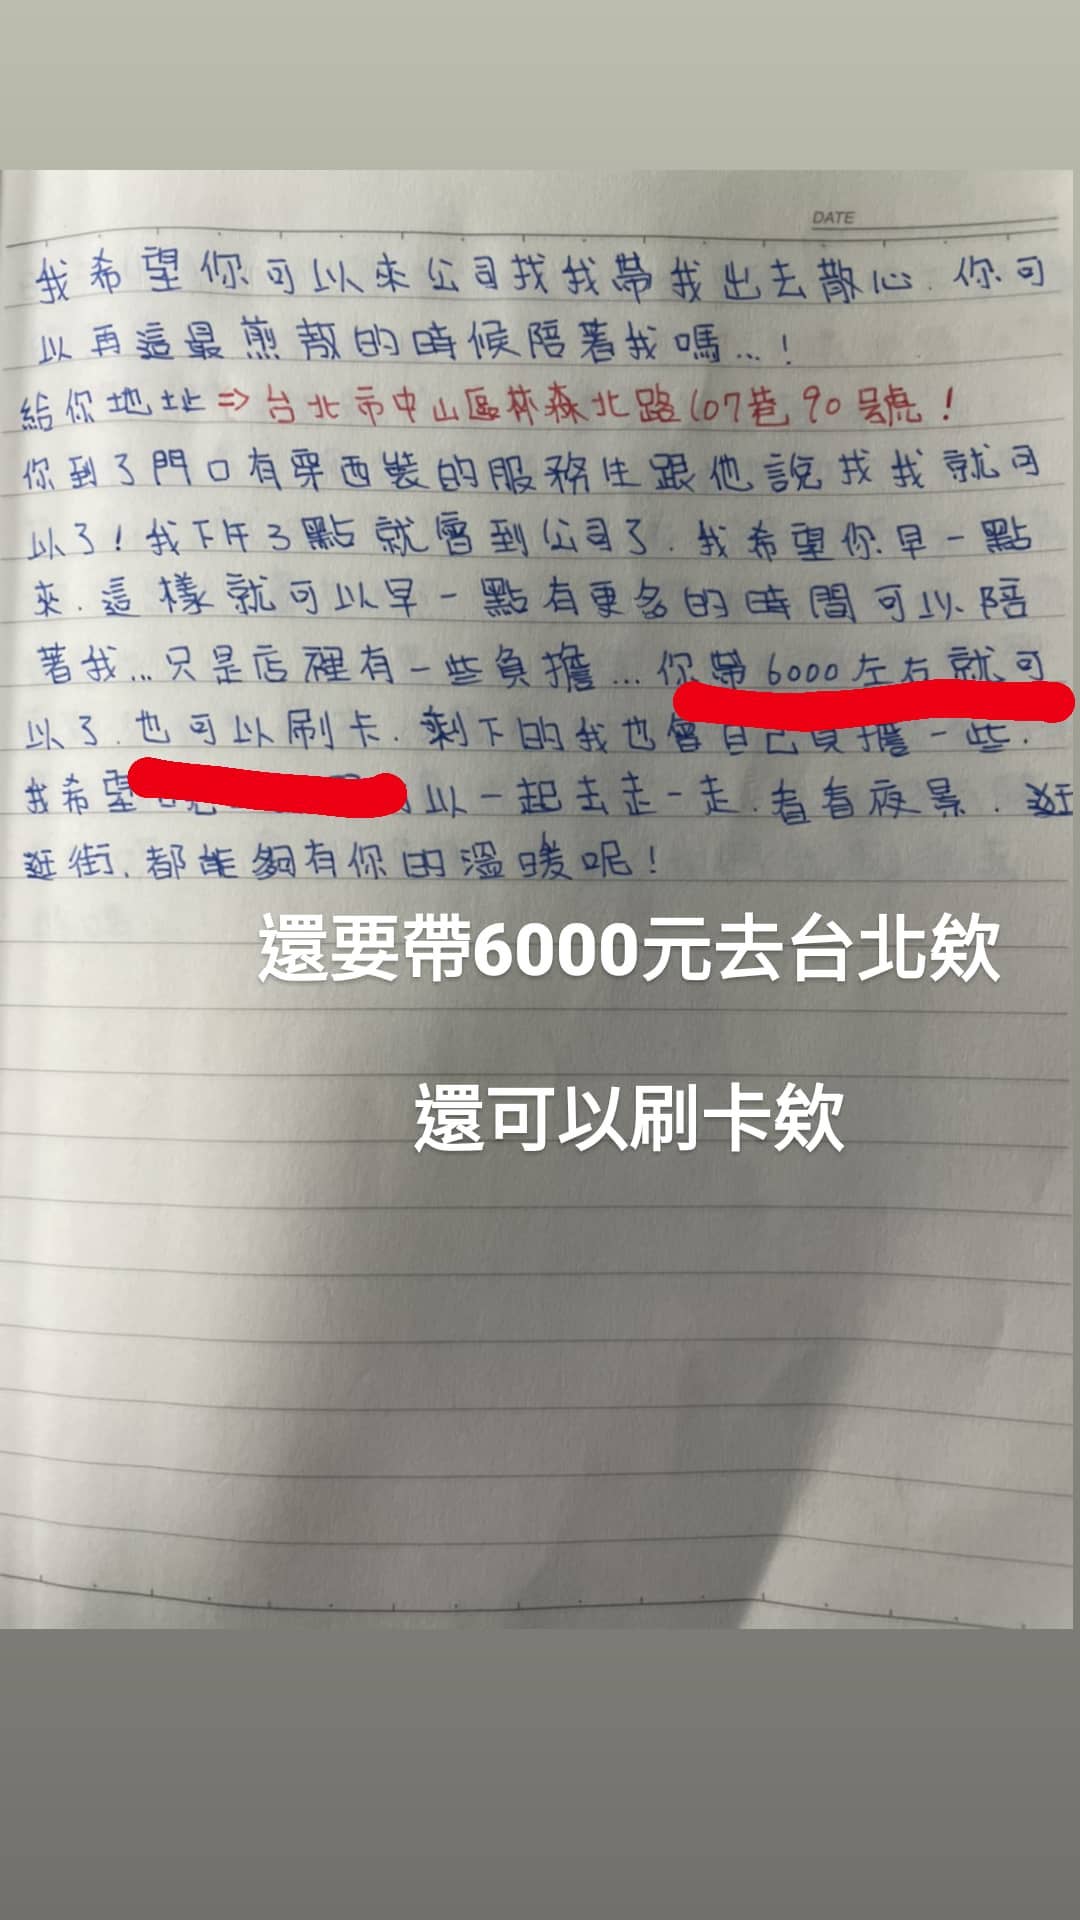 DATE
我希望你可以來公司找我帶我出去散心.你可
以再這最煎熬的時候陪著我嗎...!
給你地址⇒台北市中山區林森北路107巷90號!
你到了門口有穿西裝的服務生跟他說找我就可
以了!我下午3點就會到公司了.我希望你早一點
來.這樣就可以早一點有更多的時間可以陪
著我...只是店裡有一些負擔...你帶6000左右就可
以了.也可以刷卡.剩下的我也會自己負擔一些.
我希望 以一起去走一走.看看夜景.逛
逛街.都能夠有你的溫暖呢!
還要帶6000元去台北欸
還可以刷卡欸